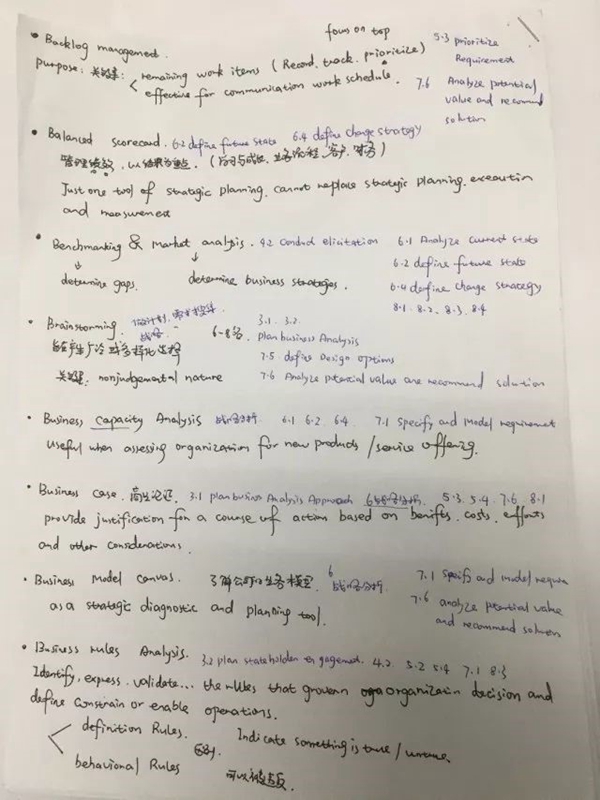 focus on top
• Backlog management.
5.3 prioritize
Requirement
purpose: 关键: remaining work items (Record, track, prioritize)
effective for communication work schedule.
7.6 Analyze potential
value and recommend
solution
• Balanced scorecard. 6.2 define future state 6.4 define change strategy
管理绩效, 以结果为重点. (学习与成长, 业务流程, 客户, 财务)
Just one tool of strategic planning. cannot replace strategic planning, execution
and measurement
• Benchmarking & Market analysis. 4.2 conduct elicitation 6.1 Analyze current state
↓ ↓ 6.2 define future state
determine gaps. determine business strategies. 6.4 define change strategy
8.1. 8.2. 8.3. 8.4
• Brainstorming. 做计划,
战略. 6-8名 3.1. 3.2.
plan business Analysis
能产生 7.5 define Design options
关键: nonjudgemental nature 7.6 Analyze potential value are recommend solution
• Business capacity Analysis 战略分析. 6.1 6.2 6.4 7.1 specify and model requirement
useful when assessing organization for new products / service offering.
• Business case. 商业论证. 3.1 plan busines Analysis Approach 6战略分析. 5.3. 5.4. 7.6. 8.1
provide justification for a course of action based on benifts. costs. efforts
and other considerations.
• Business Model canvas. 了解公司的业务模型. 6
战略分析. 7.1 specify and model requirem
as a strategic diagnostic and planning tool. 7.6 analyze potential value
and recommend solution
• Business rules Analysis. 3.2 plan stateholder engagement. 4.2. 5.2 5.4 7.1 8.3
Identify, express. validate... the rules that grovern organization decision and
define constrain or enable operations.
definition Rules. Indicate something is ture / unture.
behavioral Rules 可以被违反.